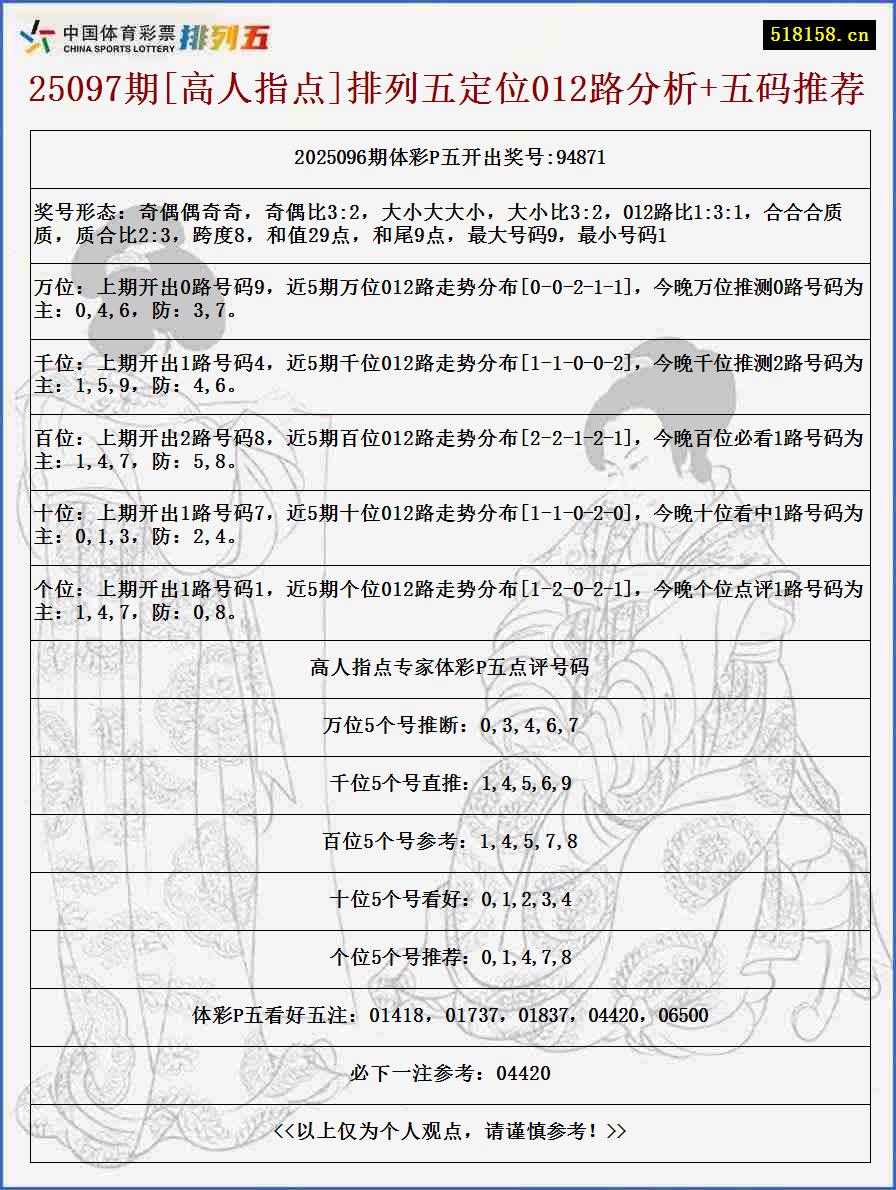 中国体育彩票
CHINA SPORTS LOTTERY
排列五
518158.cn
25097期[高人指点]排列五定位012路分析+五码推荐
2025096期体彩P五开出奖号:94871
奖号形态：奇偶偶奇奇，奇偶比3:2，大小大大小，大小比3:2，012路比1:3:1，合合合质
质，质合比2:3，跨度8，和值29点，和尾9点，最大号码9，最小号码1
万位：上期开出0路号码9，近5期万位012路走势分布[0-0-2-1-1]，今晚万位推测0路号码为
主：0,4,6，防：3,7。
千位：上期开出1路号码4，近5期千位012路走势分布[1-1-0-0-2]，今晚千位推测2路号码为
主：1,5,9，防：4,6。
百位：上期开出2路号码8，近5期百位012路走势分布[2-2-1-2-1]，今晚百位必看1路号码为
主：1,4,7，防：5,8。
十位：上期开出1路号码7，近5期十位012路走势分布[1-1-0-2-0]，今晚十位看中1路号码为
主：0,1,3，防：2,4。
个位：上期开出1路号码1，近5期个位012路走势分布[1-2-0-2-1]，今晚个位点评1路号码为
主：1,4,7，防：0,8。
高人指点专家体彩P五点评号码
万位5个号推断：0,3,4,6,7
千位5个号直推：1,4,5,6,9
百位5个号参考：1,4,5,7,8
十位5个号看好：0,1,2,3,4
个位5个号推荐：0,1,4,7,8
体彩P五看好五注：01418，01737，01837，04420，06500
必下一注参考：04420
<<以上仅为个人观点，请谨慎参考！>>